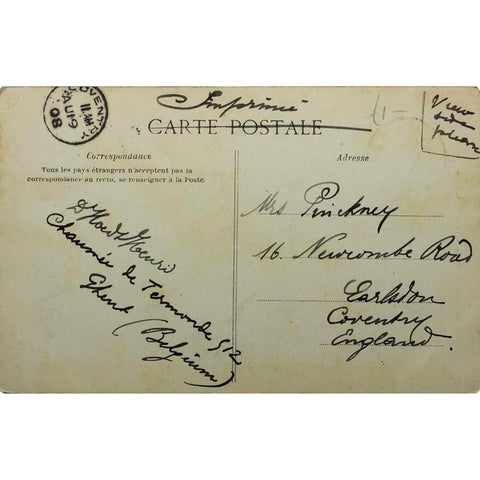 COVENTRY
11. AM
AU 9
08
Imprimé
1/-
View
side
please
CARTE POSTALE
Correspondance
Tous les pays étrangers n'acceptent pas la
correspondance au recto, se renseigner à la Poste.
Adresse
Henri
Chaussée de Termonde 512
Ghent (Belgium)
Mrs Pinckney
16. Newcombe Road
Earlsdon
Coventry
England.